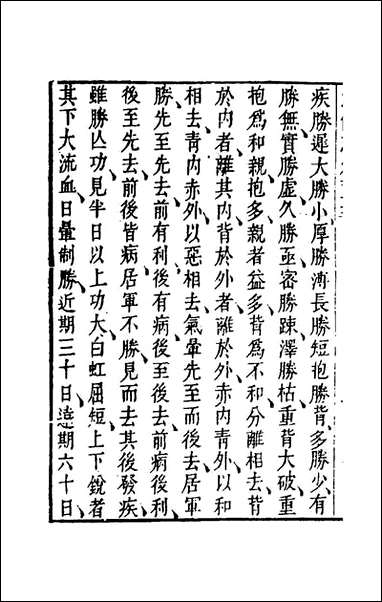 疾勝遲大勝小厚勝薄長勝短抱勝背多勝少有
勝無實勝虛久勝亟密勝踈澤勝枯重背大破重
抱爲和親抱多親者益多背爲不和分離相去背
於內者離其內背於外者離於外赤內青外以和
相去青內赤外以惡相去氣暈先至而後去居軍
勝先至先去前有利後有病後至後去前病後利
後至先去前後皆病居軍不勝見而去其後發疾
雖勝亡功見半日以上功大白虹屈短上下銳者
其下大流血日暈制勝近期三十日遠期六十日